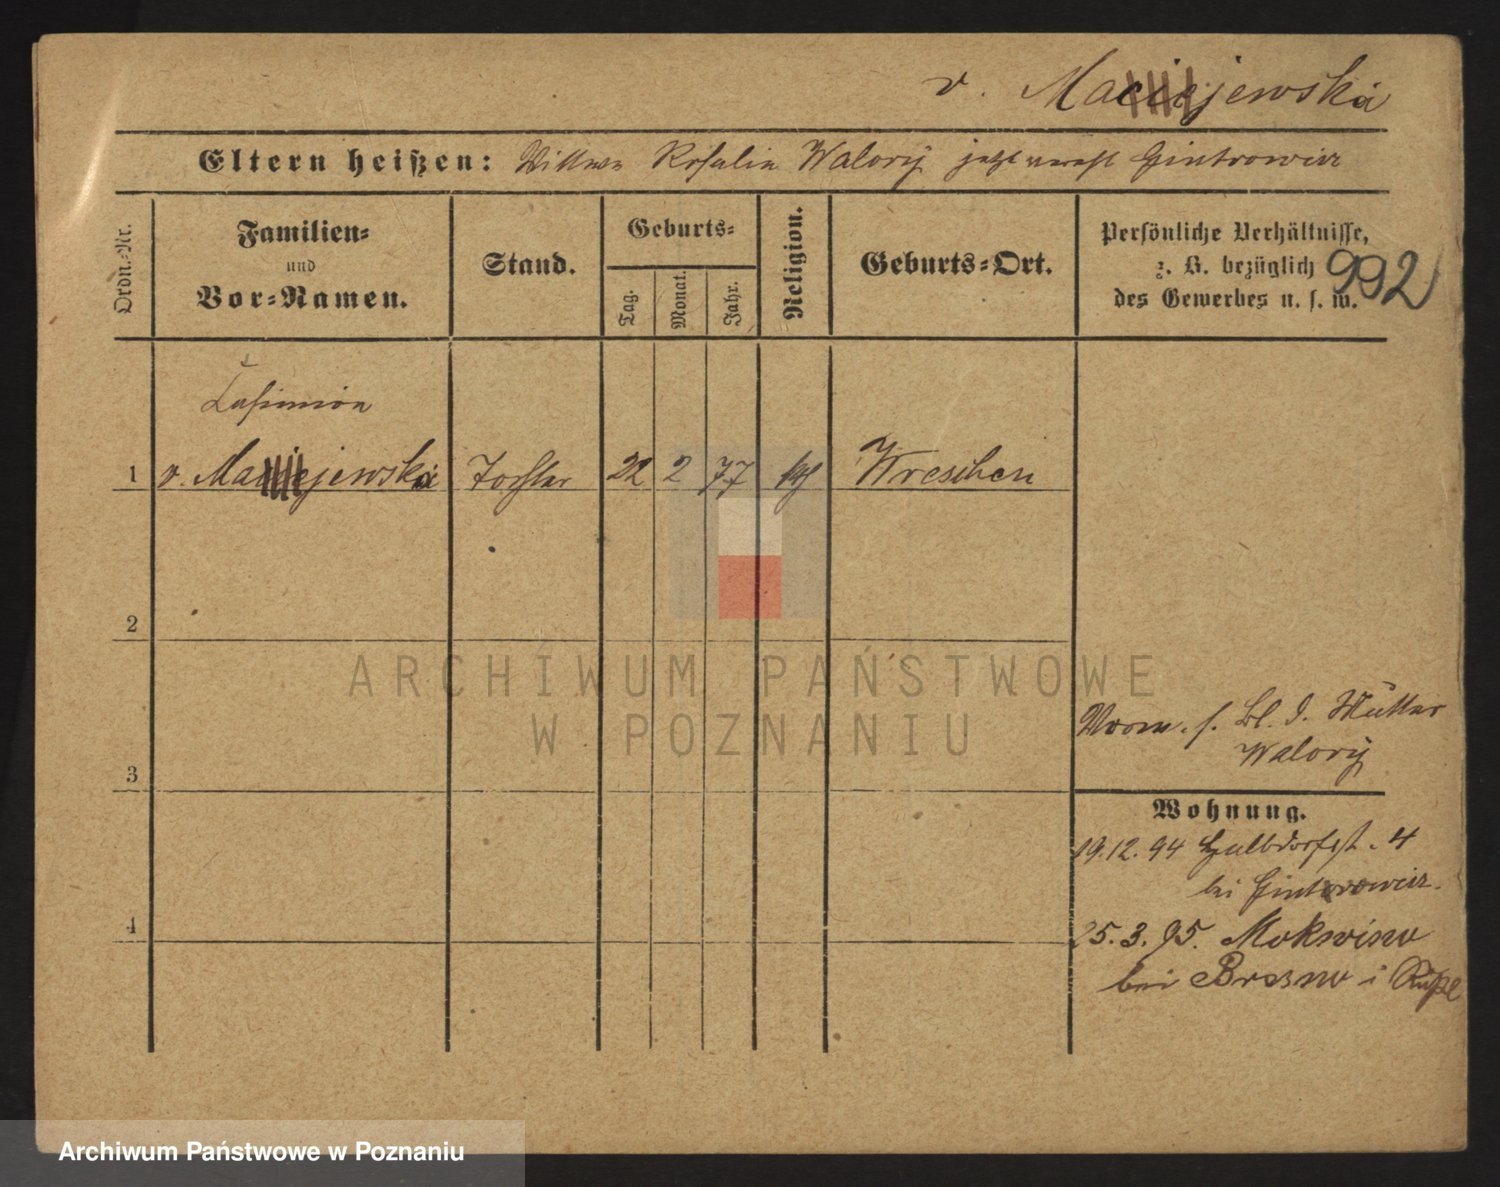 v. Maciejewska
Eltern heißen: Wittwe Rosalie Walory jetzt verehl Gintrowicz
Ordn.-Nr.
Familien-
und
Vor-Namen.
Stand.
Geburts-
Tag.
Monat.
Jahr.
Religion.
Geburts-Ort.
Persönliche Verhältnisse,
z. B. bezüglich
des Gewerbes u. s. w.
992
1
v. Maciejewska
22
2
77
Wreschen
2
3
4
s. Bl. d. Mutter
Walory
Wohnung.
19.12.94 Halbdorfst. 4
bei Gintrowicz.
25.3.95.
bei
ARCHIWUM PAŃSTWOWE
W POZNANIU
Archiwum Państwowe w Poznaniu